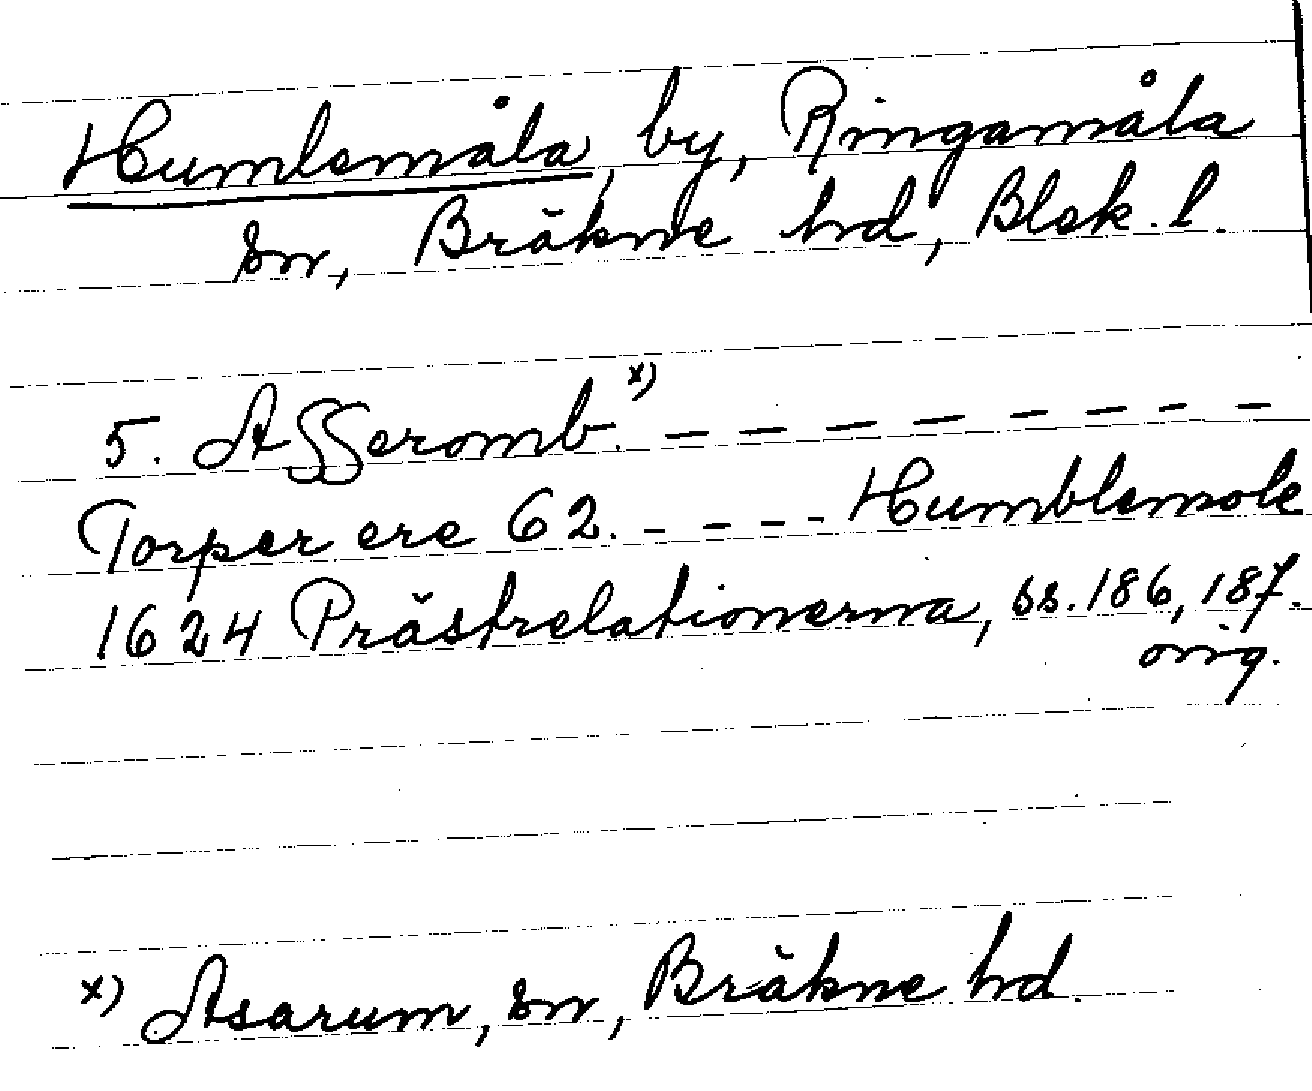 Humlemåla, by, Ringamåla
sn, Bräkne hd, Blek. l.
5. Asseromb. x) – – – – – – – –
Torper ere 62. – – – – Humblemole
1624 Prästrelationerna, ss. 186, 187.
orig.
x) Asarum, sn, Bräkne hd.